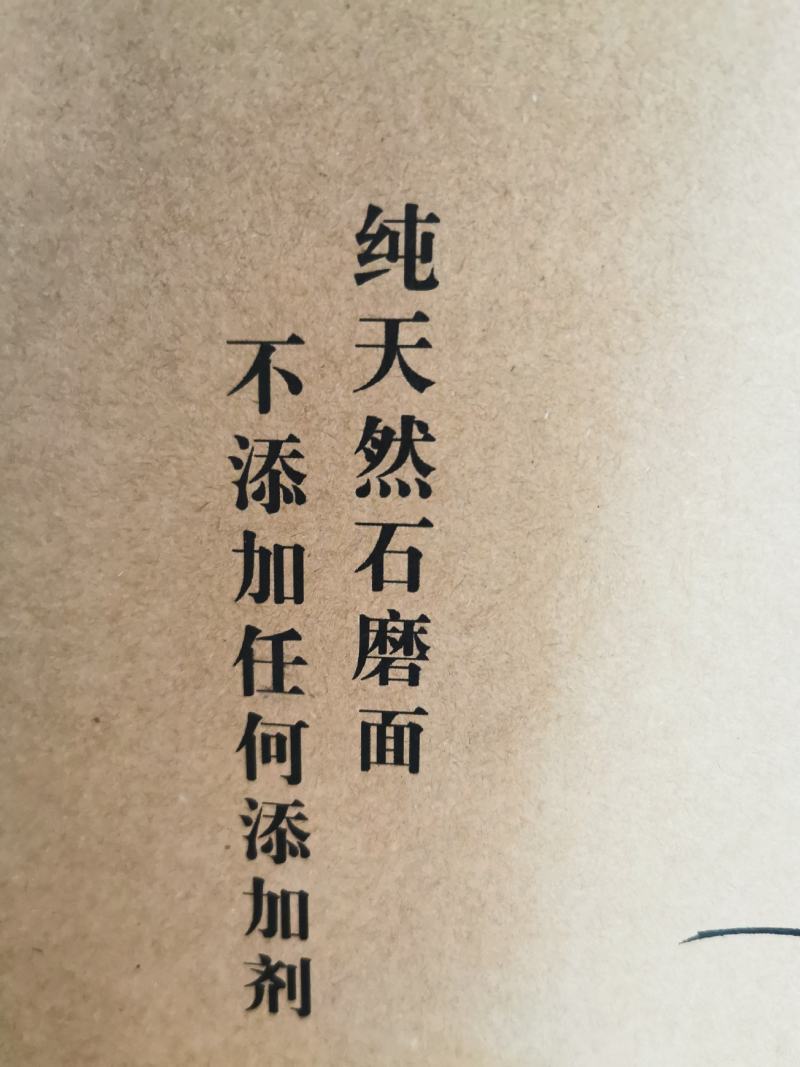 纯天然石磨面
不添加任何添加剂